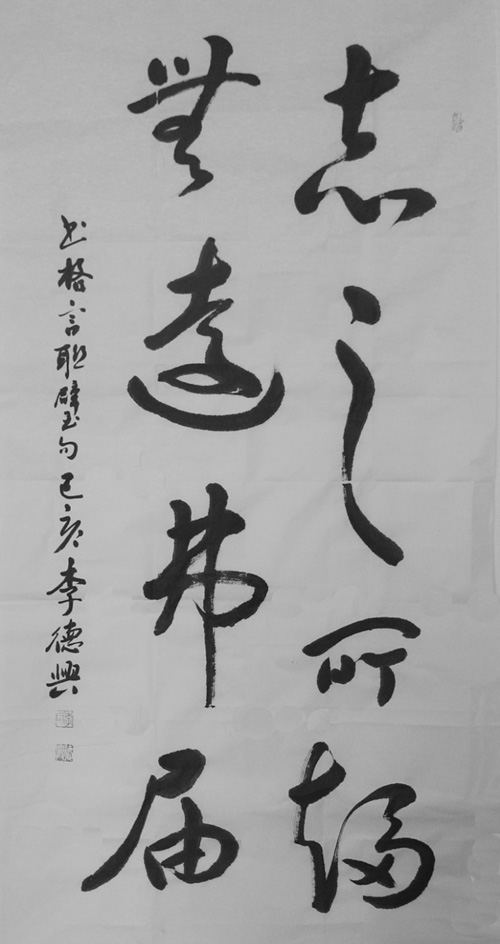 志之所趨
無遠弗届
书格言聯璧句己亥李德興